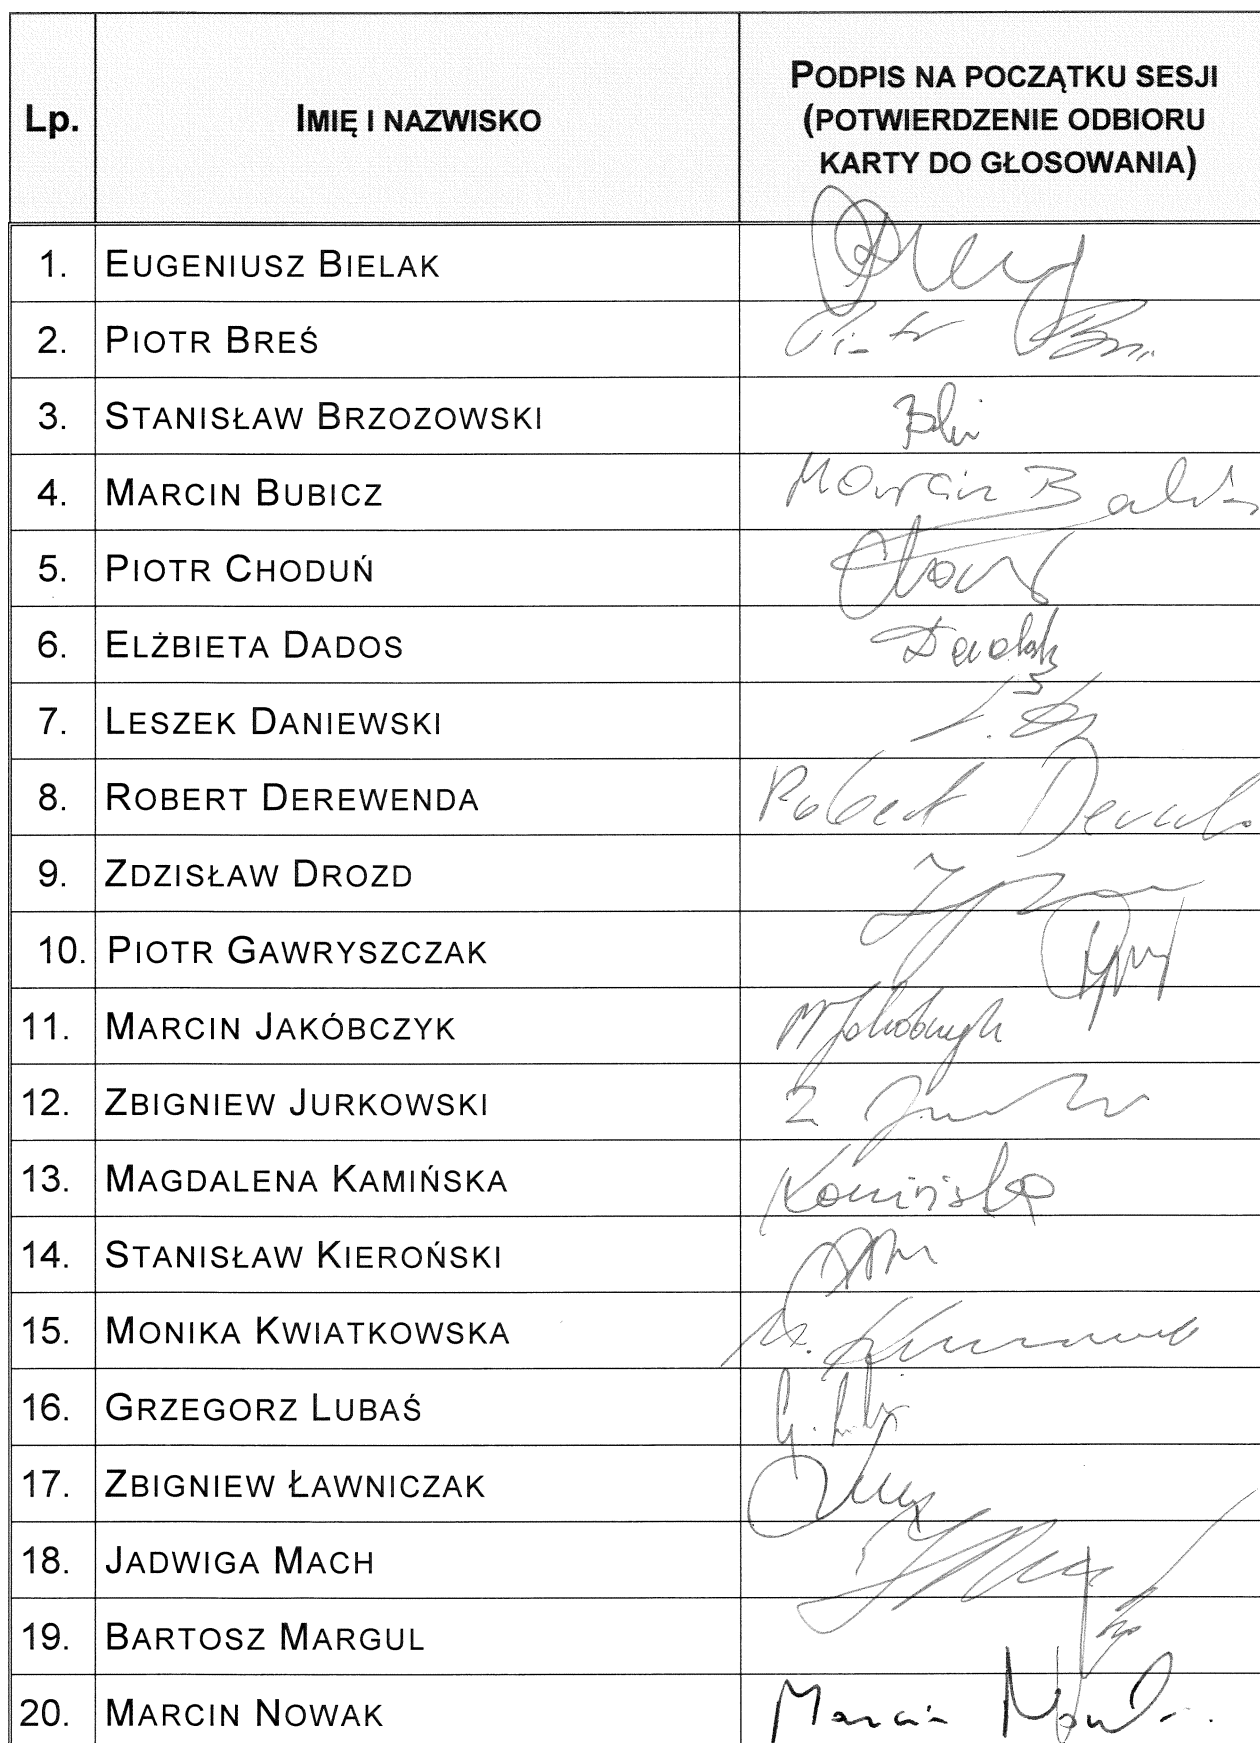 Lp. IMIĘ I NAZWISKO PODPIS NA POCZĄTKU SESJI
(POTWIERDZENIE ODBIORU
KARTY DO GŁOSOWANIA)
1. EUGENIUSZ BIELAK
2. PIOTR BREŚ Piotr
3. STANISŁAW BRZOZOWSKI
4. MARCIN BUBICZ Marcin
5. PIOTR CHODUŃ
6. ELŻBIETA DADOS
7. LESZEK DANIEWSKI
8. ROBERT DEREWENDA Robert
9. ZDZISŁAW DROZD
10. PIOTR GAWRYSZCZAK
11. MARCIN JAKÓBCZYK MJakóbczyk
12. ZBIGNIEW JURKOWSKI Z
13. MAGDALENA KAMIŃSKA Kamińska
14. STANISŁAW KIEROŃSKI
15. MONIKA KWIATKOWSKA M.
16. GRZEGORZ LUBAŚ G.
17. ZBIGNIEW ŁAWNICZAK
18. JADWIGA MACH
19. BARTOSZ MARGUL
20. MARCIN NOWAK Marcin Nowak